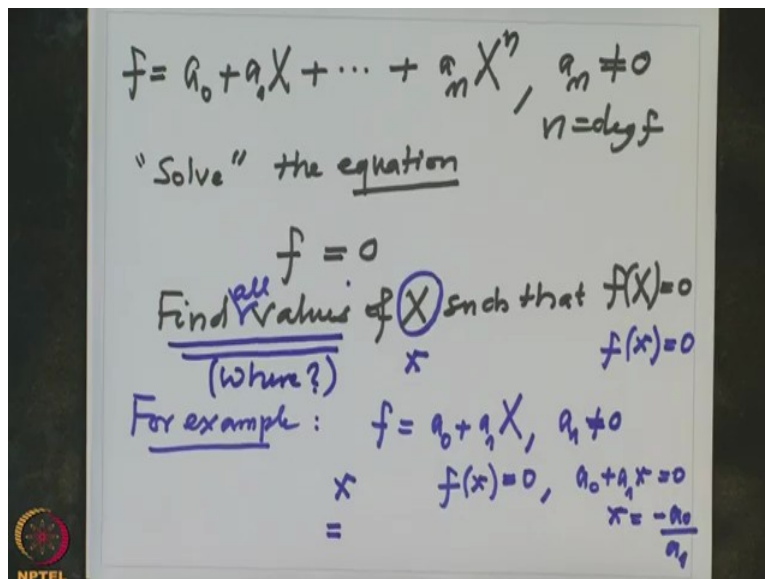 f = a₀ + a₁X + ⋯ + aₙXⁿ, aₙ ≠ 0
n = deg f
"Solve" the equation
f = 0
Find all values of X such that f(X) = 0
(where?) x f(x) = 0
For example : f = a₀ + a₁X, a₁ ≠ 0
x f(x) = 0, a₀ + a₁x = 0
= x = -a₀/a₁
NPTEL